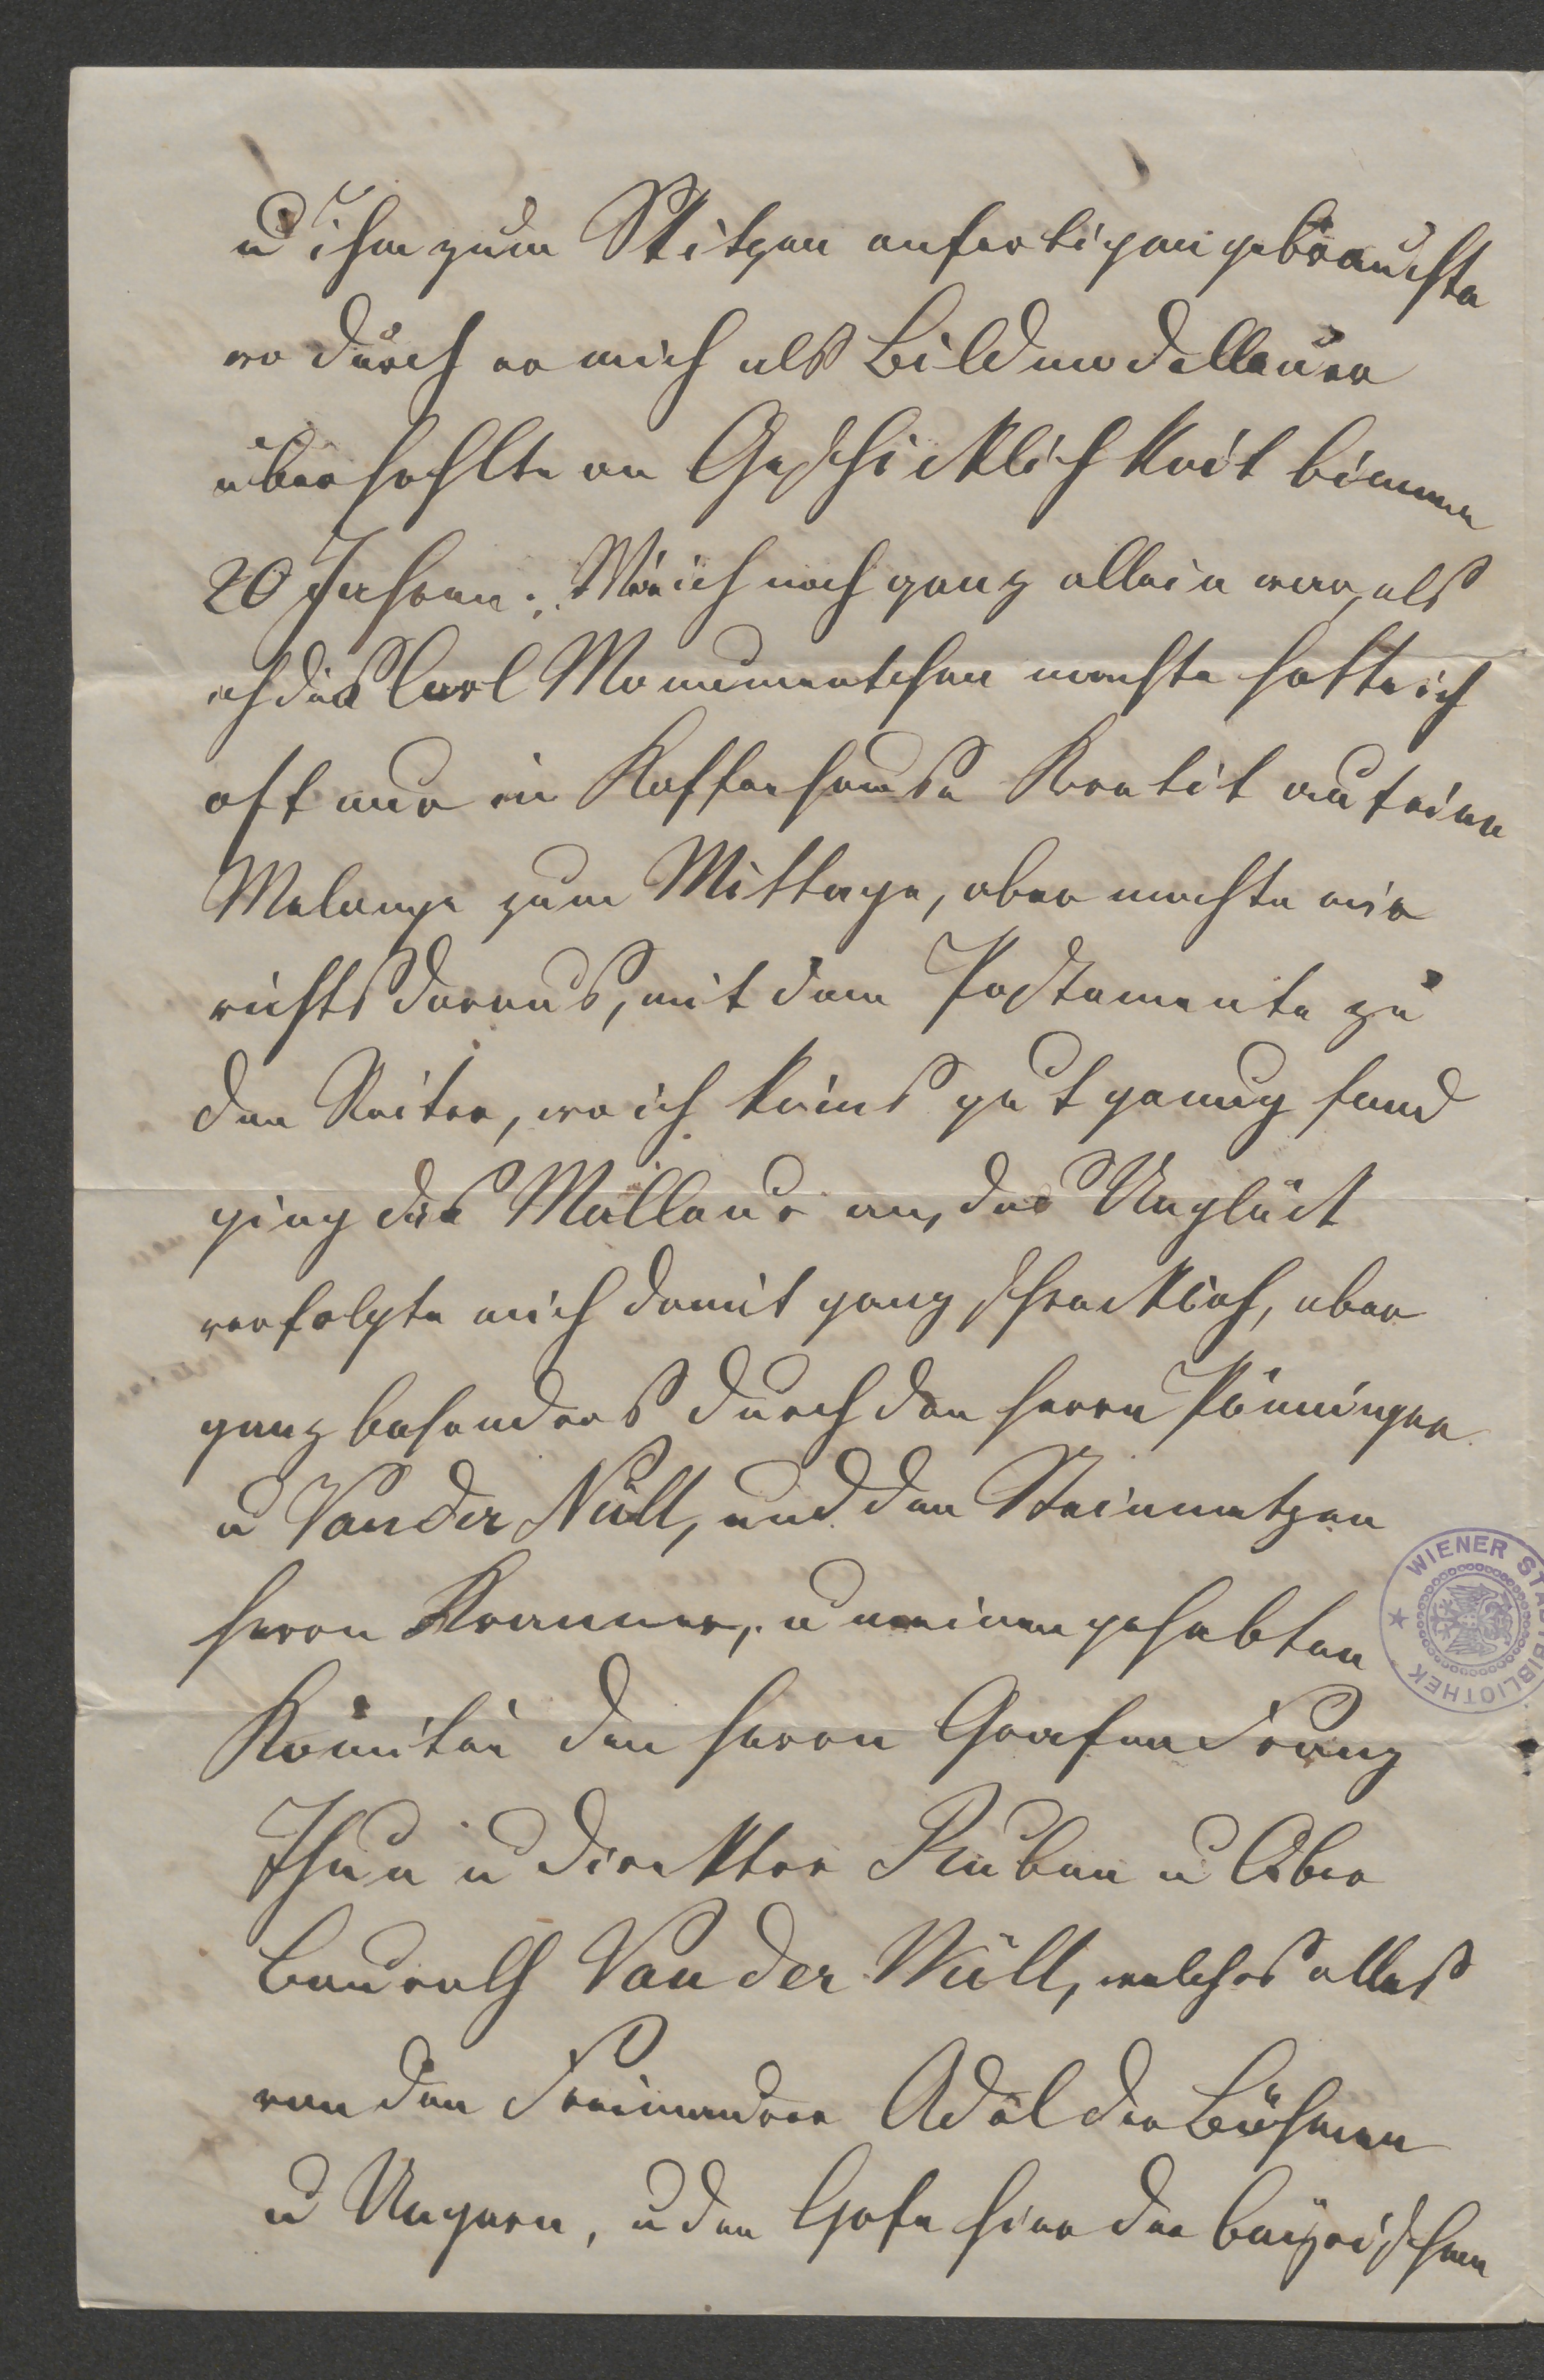 u ihm zum Skitzen anfertigen gebrauchte
wo durch er mich als Bildmodelleurr
überhohlte an Geschicklichkeit binnen
20 Jahren. Wie ich noch ganz allein war, als
ich das Carl Monumentchen machte hatte ich
oft nur in Kaffeehause Kretit auf eine
Melange zum Mittage, aber machte mir
nichts daraus, mit dem Postamente zu
den Reiter, wo ich keins gut genug fand
ging das Malleur an, das Unglück
verfolgte mich damit ganz schrecklich, aber
ganz besonders durch den Herrn Pönninger
u Van der Nüll, und den Steinmetzen
Herrn Kranner, u meinen gehabten
Komitée den Herrn Grafen Franz
Thun u Direkter Ruben u Ober
Baurath Van der Nüll, welches alles
von den Adel der Böhmen
u Ungarn, u den Hofe hier der bayrischen
WIENER STADTBIBLIOTHEK